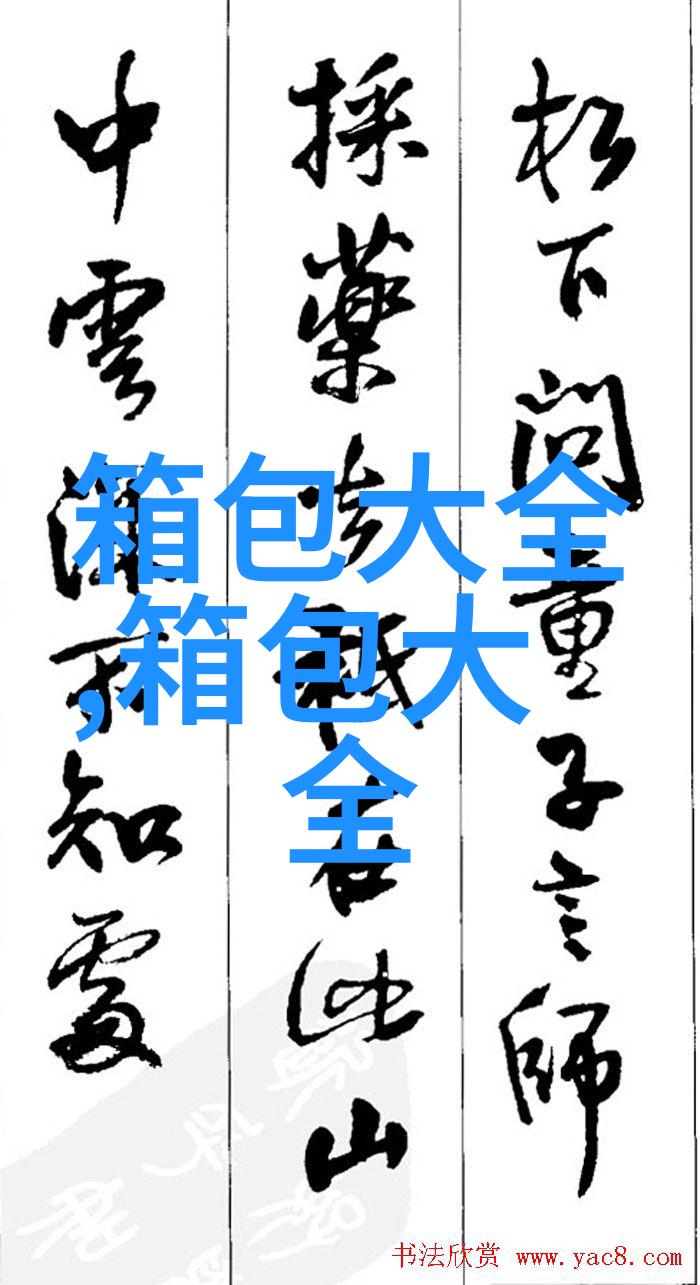 松下问童子言師
採藥去祇在此山
中雲深不知處
箱包大全
,箱包大
全
书法欣赏 www.yac8.com